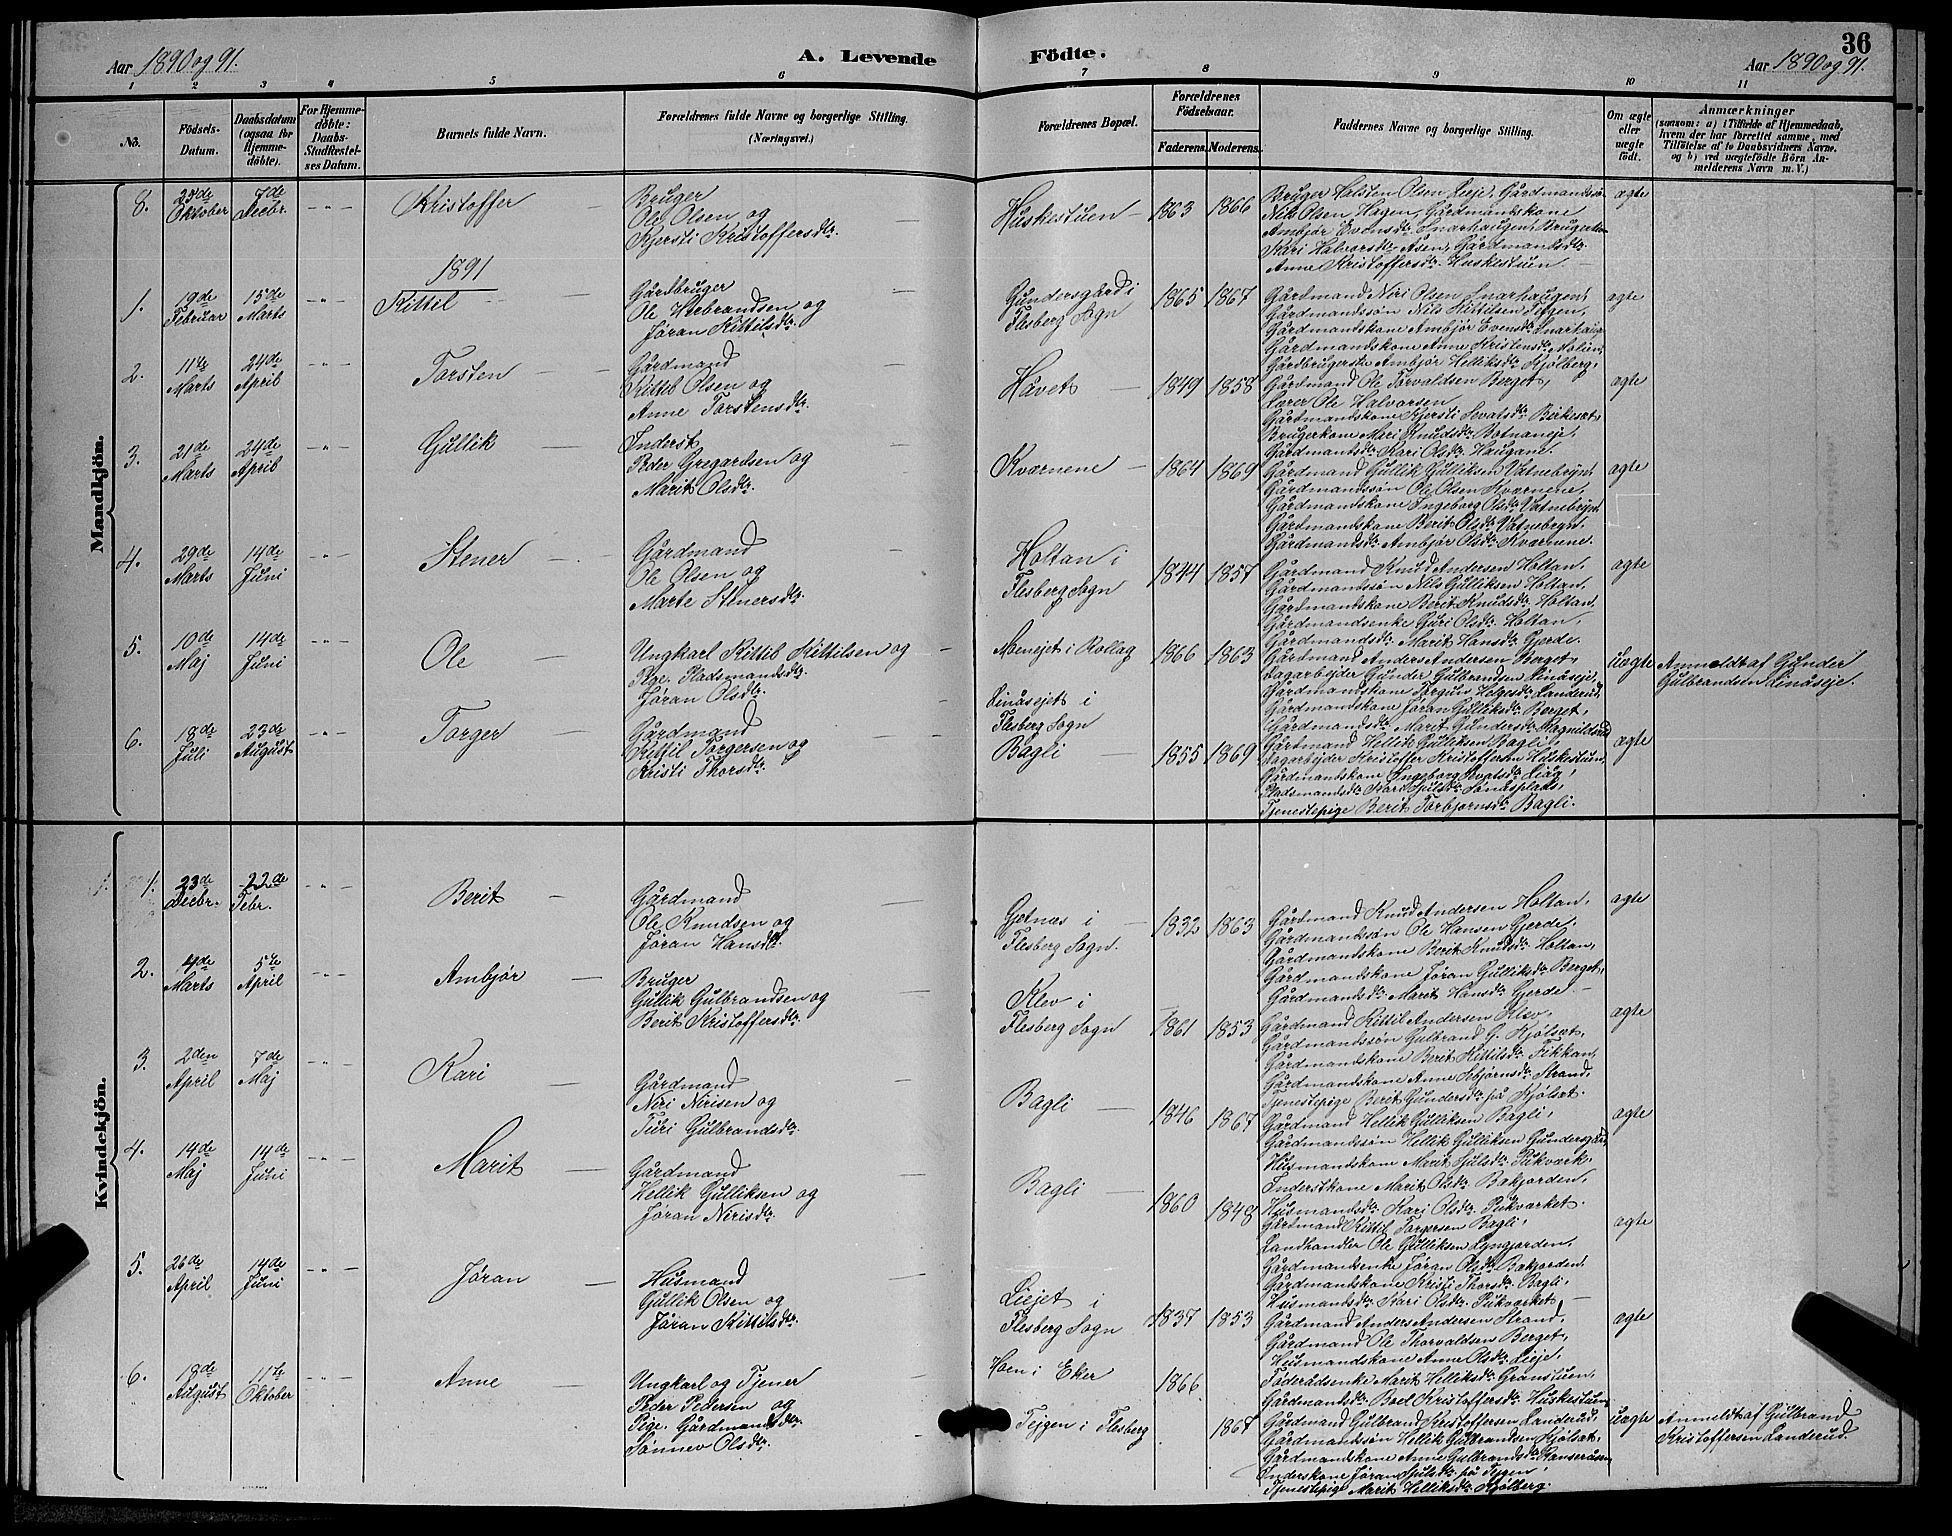 36
Aar 1890 og 91.
A. Levende Födte.
Aar 1890 og 91.
1 2 3 4 5 6 7 8 9 10 11
No.
Födsels-Datum.
Daabsdatum (ogsaa for Hjemme-döbte).
For Hjemme-döbte: Daabs-Stadfæstel-ses Datum.
Barnets fulde Navn.
Forældrenes fulde Navne og borgerlige Stilling.
(Næringsvei.)
Forældrenes Bopæl.
Forældrenes Födselsaar.
Faderens. Moderens.
Faddernes Navne og borgerlige Stilling.
Om ægte eller uægte födt.
Anmærkninger
(saasom: a) i Tilfælde af Hjemmedaab,
hvem der har forrettet samme, med
Tilföielse af to Daabsvidners Navne.
og b) ved uægtefödte Börn An-
melderens Navn m. V.)
Mandkjön.
8. 23de Oktober 7de Decbr. - " - Kristoffer
Bruger
Ole Olsen og
Kjersti Kristoffersdtr.
Huskestuen 1863 1866
Bruger Halsten Olsen Lieje, Gårdmandssøn
Nils Olsen Hagen, Gårdmandskone
Ambjør Evensdtr. Snarhaugen, Brugerkone
Kari Halvorsdtr. Åsen, Gårdmandsdtr.
Anne Kristoffersdtr. Huskestuen.
ægte
1891
1. 19de Februar 15de Marts - " - Kittil
Gårdbruger
Ole Herbrandsen og
Jøran Kittilsdtr.
Gundersgård i
Flesberg Sogn
1865 1867
Gårdmand Niri Olsen Snarhaugen,
Gårdmandssøn Nils Kittilsen Tejgen,
Gårdmandskone Ambjør Evensdtr. Snarhaug
Gårdmandskone Anne Kristensdtr. Moli
Gårdbrugerske Ambjør Helliksdtr. Kjølberg.
ægte
2. 11te Marts 24de April - " - Torsten
Gårdmand
Kittil Olsen og
Anne Torstensdtr.
Håvet 1849 1858
Gårdmand Ole Torvaldsen Berget,
Lærer Ole Halvorsen
Gårdmandskone Kjersti Sevatsdtr. Birkesæt,
Brugerkone Mari Knudsdtr. Botnaneje,
Gårdmandsdtr. Kari Olsdtr. Haugane.
ægte
3. 21de Marts 24de April - " - Gullik
Inderst
Peder Gregardsen og
Marit Olsdtr.
Kværnene 1864 1869
Gårdmand Gullik Gulliksen Vatnebryn,
Gårdmandssøn Ole Olsen Kværnene,
Gårdmandskone Ingeborg Olsdtr. Vatnebryn
Gårdmandskone Berit Olsdtr. Vatnebryn,
Gårdmandsdtr. Ambjør Olsdtr. Kværnene.
ægte
4. 29de Marts 14de Juni - " - Stener
Gårdmand
Ole Olsen og
Marte Stenersdtr.
Holtan i
Flesberg Sogn
1844 1857
Gårdmand Knud Andersen Holtan,
Gårdmandssøn Nils Gulliksen Holtan,
Gårdmandskone Berit Knudsdtr. Holtan,
Gårdmandsenke Guri Olsdtr. Holtan,
Gårdmandsdtr. Marit Hansdtr. Gjerde.
ægte
5. 10de Maj 14de Juni - " - Ole
Ungkarl Kittil Kittilsen og
Pige. Pladsmandsdtr.
Jøran Olsdtr.
Moenejet i Rollag
Linåsejet i
Flesberg Sogn
1866 1863
Gårdmand Anders Andersen Berget,
Dagarbejder Gunder Gulbrandsen Linåseje,
Gårdmandskone Jørgun Helgesdtr. Landerud,
Gårdmandskone Jøran Gulliksdtr. Berget,
Gårdmandsdtr. Marit Gundersdtr. Ragnildsrud
uægte
Anmeldt af Gunder
Gulbrandsen Linåseje.
6. 18de Juli 23de August - " - Torger
Gårdmand
Kittil Torgersen og
Kristi Thorsdtr.
Bagli 1855 1869
Gårdmand Hellik Gulliksen Bagli,
Dagarbejder Kristoffer Kristoffersen Huskestuen,
Gårdmandskone Ingeborg Sevatsdtr. Liåg,
Pladsmandsdtr. Kari Sjulsdtr. Lonåsplads,
Tjenestepige Berit Torbjørnsdtr. Bagli.
ægte
Kvindekjön.
1. 23de Decbr. 22de Febr. - " - Berit
Gårdmand
Ole Knudsen og
Jøran Hansdtr.
Gjetnæs i
Flesberg Sogn.
1832 1863
Gårdmand Knud Andersen Holtan,
Gårdmandssøn Ole Hansen Gjerde,
Gårdmandskone Berit Knudsdtr. Holtan,
Gårdmandskone Jøran Gulliksdtr. Berget,
Gårdmandsdtr. Marit Hansdtr. Gjerde.
ægte
2. 4de Marts 5te April - " - Ambjør
Bruger
Gullik Gulbrandsen og
Berit Kristoffersdtr.
Klev i
Flesberg Sogn
1861 1853
Gårdmand Kittil Andersen Klev,
Gårdmandssøn Gulbrand G. Kjølsæt,
Gårdmandskone Berit Kittilsdtr. Fikkan,
Gårdmandskone Anne Sebjørnsdtr. Strand,
Tjenestepige Berit Gundersdtr. på Kjølsæt.
ægte
3. 2den April 7de Maj - " - Kari
Gårdmand
Niri Nirisen og
Turi Gulbrandsdtr.
Bagli 1846 1867
Gårdmand Hellik Gulliksen Bagli,
Gårdmandssøn Hellik Gulliksen Gundersgård
Husmandskone Marit Sjulsdtr. Pukværk.
Inderstkone Marit Olsdtr. Bakjorden,
Husmandsdtr. Kari Olsdtr. Pukværket.
ægte
4. 14de Maj 14de Juni - " - Marit
Gårdmand
Hellik Gulliksen og
Jøran Nirisdtr.
Bagli 1860 1848
Gårdmand Kittil Torgersen Bagli,
Landhandler Ole Gulliksen Lyngjorden,
Gårdmandsenke Jøran Olsdtr. Bakjorden,
Gårdmandskone Kristi Thorsdtr. Bagli,
Husmandsdtr. Kari Olsdtr. Pukværket.
ægte
5. 26de April 14de Juni - " - Jøran
Husmand
Gullik Olsen og
Jøran Kittilsdtr.
Liejet i
Flesberg Sogn
1837 1853
Gårdmand Anders Andersen Strand,
Gårdmand Ole Thorvaldsen Berget,
Husmandskone Anne Olsdtr. Lieje,
Føderådsenke Marit Helliksdtr. Grønstuen,
Gårdmandsdtr. Boel Kristoffersdtr. Huskestuen
ægte
6. 18de August 11te Oktober - " - Anne
Ungkarl og Tjener
Peder Pedersen og
Pige. Gårdmandsdtr.
Sønnev Olsdtr.
Hoen i Eker
Tejgen i Flesberg
1866 1867
Gårdmand Gulbrand Kristoffersen Landerud,
Gårdmandssøn Hellik Gulbrandsen Kjølsæt,
Gårdmandskone Anne Gulbrandsdtr.
Inderstkone Jøran Sjulsdtr. på Tejgen,
Tjenestepige Marit Helliksdtr. Kjølberg.
uægte
Anmeldt af Gulbrand
Kristoffersen Landerud.